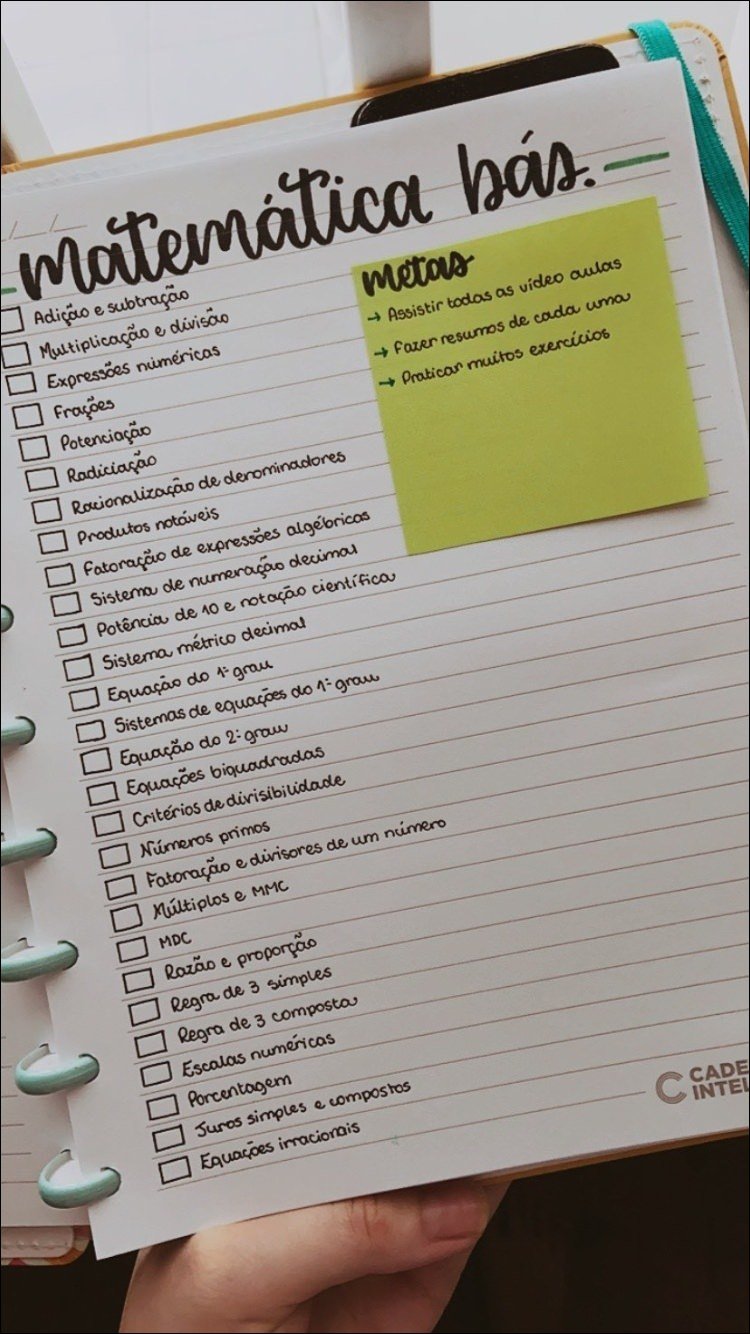 matemática bás.
metas
→ Assistir todas as vídeo aulas
→ Fazer resumos de cada uma
→ Praticar muitos exercícios
Adição e subtração
Multiplicação e divisão
Expressões numéricas
Frações
Potenciação
Radiciação
Racionalização de denominadores
Produtos notáveis
Fatoração de expressões algébricas
Sistema de numeração decimal
Potência de 10 e notação científica
Sistema métrico decimal
Equação do 1º grau
Sistemas de equações do 1º grau
Equação do 2º grau
Equações biquadradas
Critérios de divisibilidade
Números primos
Fatoração e divisores de um número
Múltiplos e MMC
MDC
Razão e proporção
Regra de 3 simples
Regra de 3 composta
Escalas numéricas
Porcentagem
Juros simples e compostos
Equações irracionais
CADE
INTEL